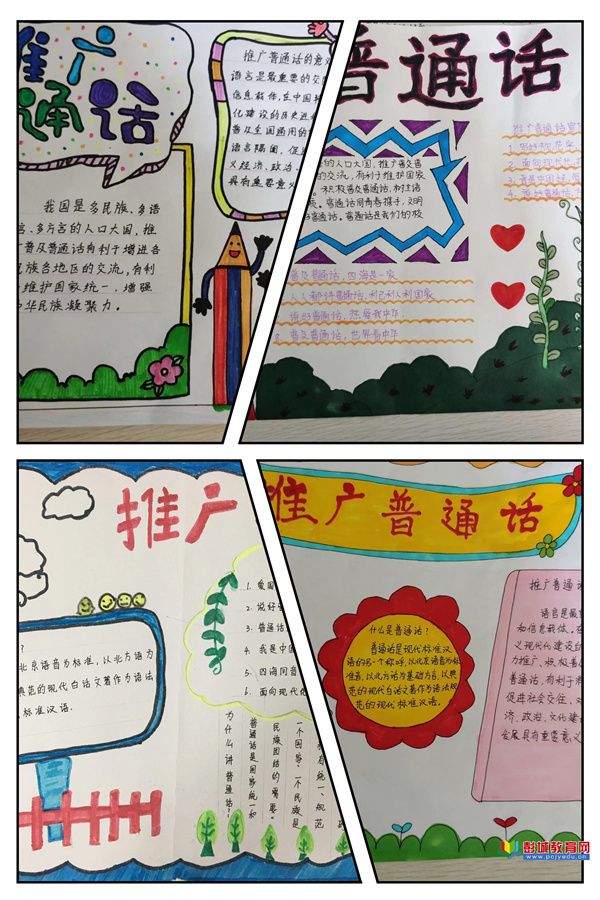 推广
通话
我国是多民族、多语
言、多方言的人口大国，推
广普及普通话有利于增进各
民族各地区的交流，有利
维护国家统一，增强
中华民族凝聚力。
推广普通话的意义
语言是最重要的交
信息载体，在中国
化建设的历史进
普及全国通用的
语言隔阂，促进
义经济、政治、
具有重要意义
普通话
的人口大国，推广普及普
的交流，有利于维护国家
积极普及普通话，树立语
普通话同肩春撰手，文明
普通话。普通话是我们的校
普及普通话，四海是一家
人人都讲普通话，利己利人利国家
说好普通话，热爱我中华
普及普通话，世界看中华
推广普通话宣
1.
2. 面向现代化，推
3. 我是中国娃，
4. 说好普通话，
推广
？
北京语音为标准，以北方语为
典范的现代白话文著作为语法
标准汉语.
1. 爱国
2. 说好
3. 普通话
4. 我是中国
5. 四海同音
6. 面向现代化
为什么讲普通话？
普通话是国家统一和
民族团结的需要。
一个国家、一个民族是
有统一、规范
推广普通话
什么是普通话？
普通话是现代标准汉
语的另一个称呼，以北京语音为标
准音，以北方话为基础方言，以典
范的现代白话文著作为语法规
范的现代标准汉语。
推广普通话
语言是最
和信息载体。在
义现代化建设的
力推广、积极普
普通话，有利于
促进社会交往，对
济、政治、文化建
会发展具有重要意义
彭城教育网
www.pcjyedu.cn